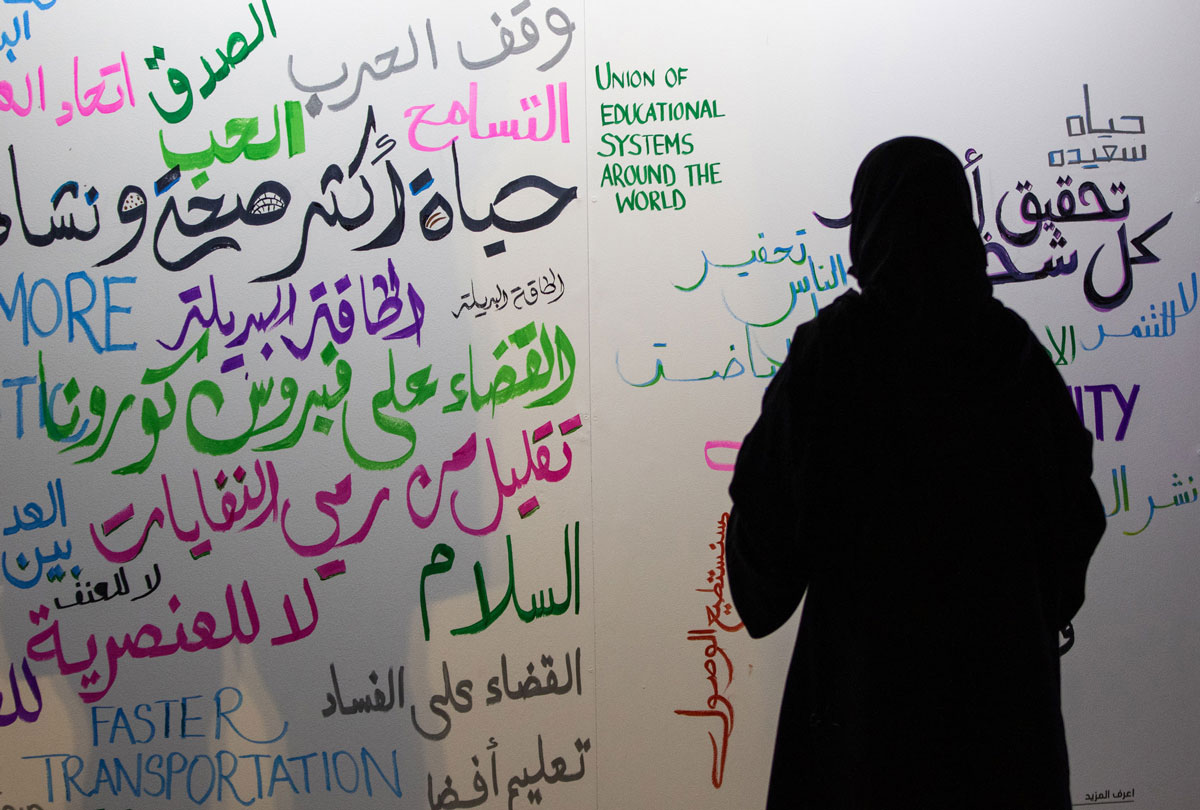 الصدق
وقف الحرب
اتحاد
التسامح
الحب
حياة أكثر صحة و نشاط
MORE
الطاقة البديلة
الطاقة البديلة
القضاء على فيروس كورونا
تقليل من رمي النفايات
بين
السلام
لا للعنف
لا للعنصرية
القضاء على الفساد
FASTER
TRANSPORTATION
تعليم
UNION OF
EDUCATIONAL
SYSTEMS
AROUND THE
WORLD
حياه
سعيده
تحقيق
كل
تحفيز
الناس
لا للتنمر
نشر
سنستطيع الوصول
اعرف المزيد